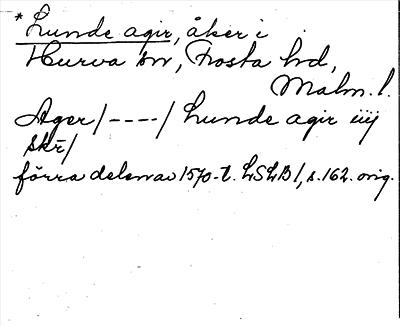 * Lunde agir, åker i
Hurva sn, Frosta hd,
Malm. l.
Ager/----/ Lunde agir iiij
skr/
förra delen av 1570-t. LSLB 1, s. 162. orig.